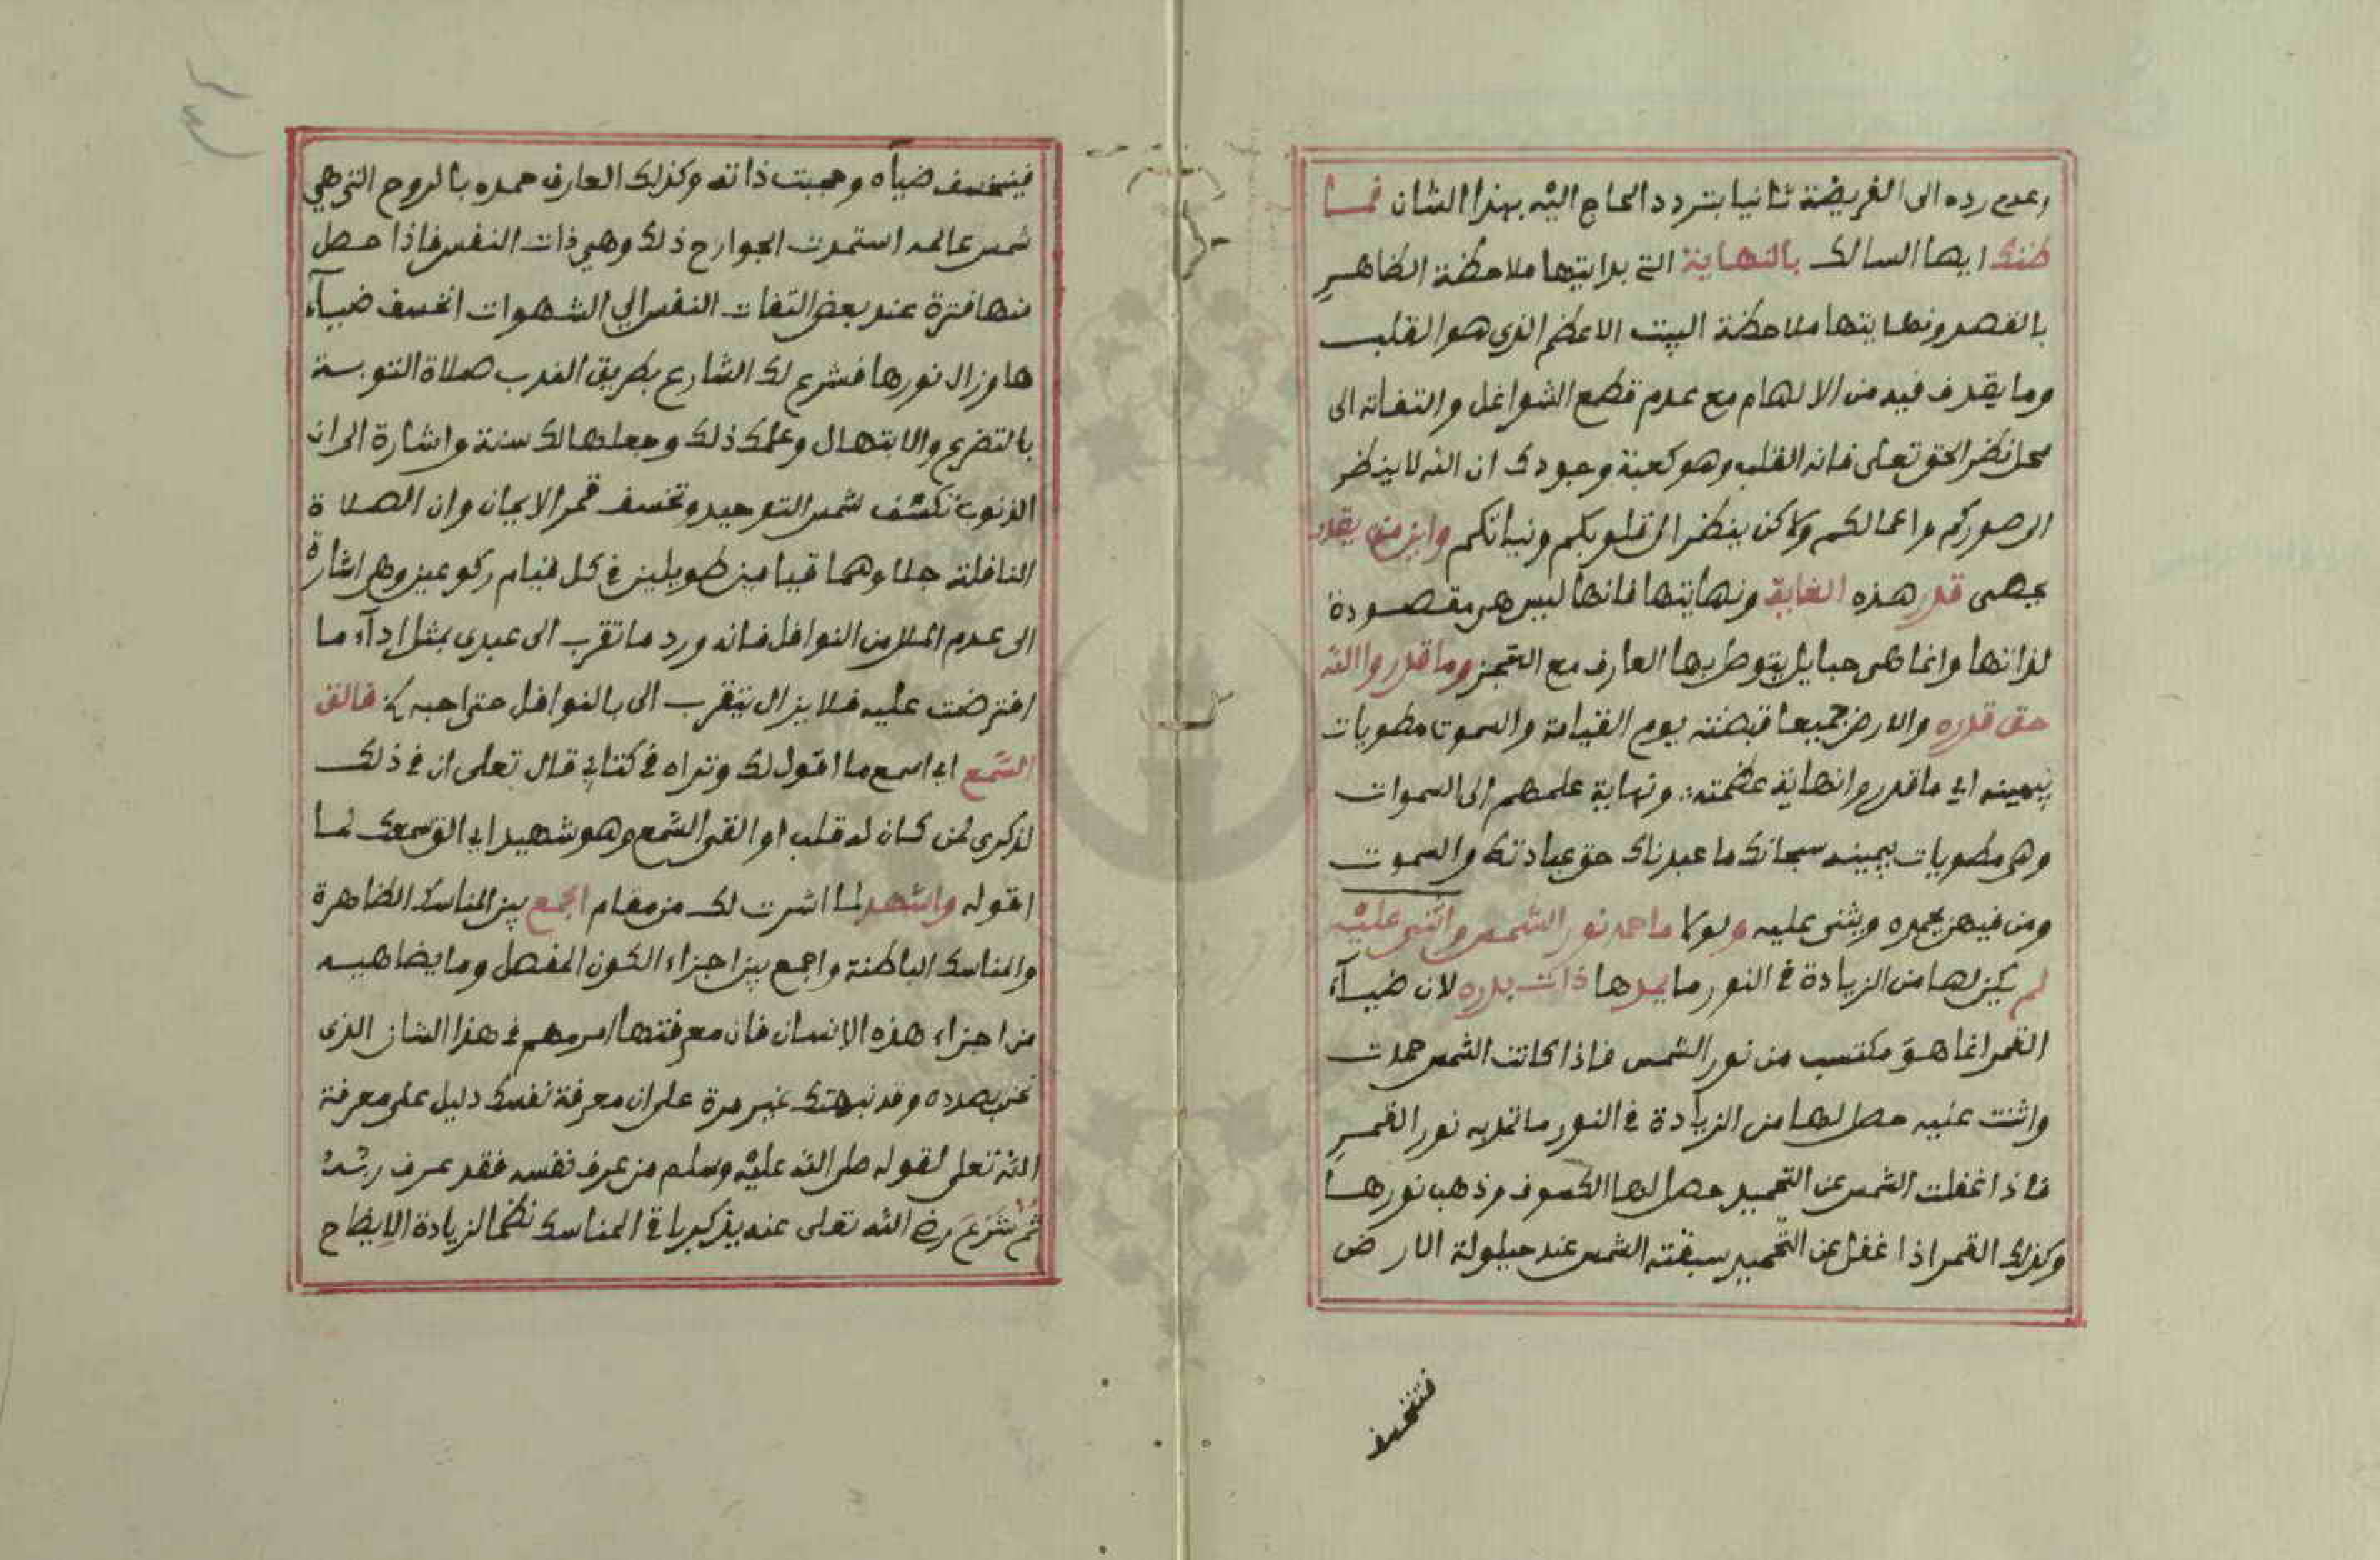 وعدم رده الى الفريضة ثانيا بتردد الحاج اليه بهذا الشان فما
ظنك ايها السالك بالنهاية التي بدايتها ملاحظة الظاهر
بالقصد ونهايتها ملاحظة البيت الاعظم الذي هو القلب
وما يقذف فيه من الالهام مع عدم قطع الشواغل والتفاته الى
محل نظر الحق تعلى فانه القلب وهو كعبة وجودك ان الله لا ينظر
الى صوركم واعمالكم ولاكن ينظر الى قلوبكم ونياتكم واين من يقدر
يحصى قدر هذه الغاية ونهايتها فانها ليس هي مقصودة
لذاتها وانما هى حبايل يتوطى بها العارف مع العجز وما قدروا الله
حق قدره والارض جميعا قبضته يوم القيامة والسموت مطويات
بيمينه اي ما قدروا نهاية عظمته ونهاية علمهم الى السموات
وهى مطويات بيمينه سبحانك ما عبدناك حق عبادتك والسموت
ومن فيهن يحمده ويثنى عليه ولولا ما حمد نور الشمس واثنى عليه
لم يكن لها من الزيادة في النور ما يمدها ذات بدره لان ضيآء
القمر انما هو مكتسب من نور الشمس فاذا كانت الشمس حمدت
واثنت عليه حصل لها من الزيادة في النور ما تمد به نور القمر
فاذا غفلت الشمس عن التحميد حصل لها الكسوف وذهب نورها
وكذلك القمر اذا غفل عن التحميد سبقته الشمس عند حيلولة الارض
فينخسف
فينخسف ضيآه وحجبت ذاته وكذلك العارف حمده بالروح التى هي
شمس عالمه استمدت الجوارح ذلك وهي ذات النفس فاذا حصل
منها فترة عند بعض التفات النفس الى الشهوات انخسف ضيآء
ها وزال نورها فشرع لك الشارع بطريق الندب صلاة التوبة
بالتضرع والابتهال وعلمك ذلك وجعلها لك سنة واشارة الى ان
الذنوب تكسف شمس التوحيد وتخسف قمر الايمان وان الصلاة
النافلة جلا وهما قيامين طويلين في كل قيام ركوعين وهى اشارة
الى عدم الملل من النوافل فانه ورد ما تقرب الى عبدى بمثل ادآء ما
افترضت عليه فلا يزال يتقرب الى بالنوافل حتى احبه فالق
السمع اي اسمع ما اقول لك وتراه في كتابي قال تعلى ان في ذلك
لذكرى لمن كان له قلب او القى السمع وهو شهيد اي الق سمعك لما
اقوله واشهد لما اشرت لك من مقام الجمع بين المناسك الظاهرة
والمناسك الباطنة واجمع بين اجزاء الكون المفصل وما يضاهيه
من اجزاء هذه الانسان فان معرفتها امر مهم في هذا الشان الذى
نحن بصدده وقد نبهتك غير مرة على ان معرفة نفسك دليل على معرفة
الله تعلى لقوله صلى الله عليه وسلم من عرف نفسه فقد عرف ربه
ثم شرع رضي الله تعلى عنه يذكر في المناسك نظما لزيادة الايضاح